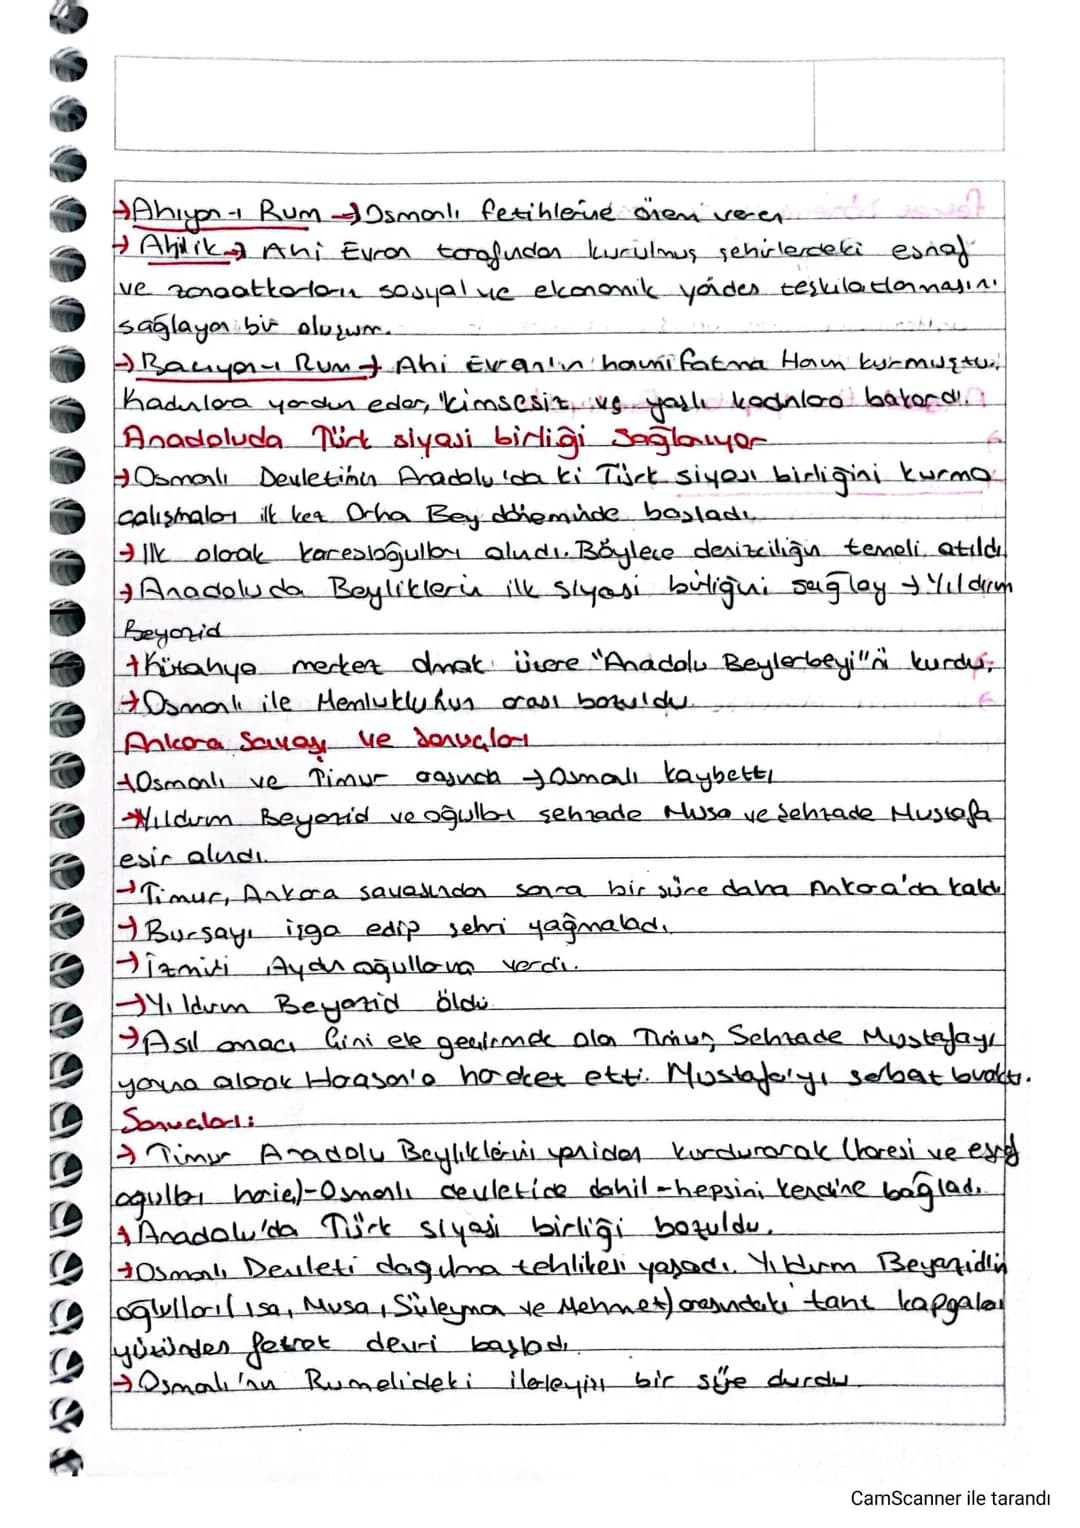 →Ahiyan-ı Rum → Osmanlı fetihlerine önem veren
→ Ahilik → Ahi Evran tarafından kurulmuş şehirlerdeki esnaf
ve zanaatkarların sosyal ve ekonomik yönden teşkilatlanmasını
sağlayan bir oluşum.
→Bacıyan-ı Rum → Ahi Evran'ın hanımı Fatma Hatun kurmuştu.
Kadınlara yardım eder, kimsesiz ve yaşlı kadınlara bakardı.
Anadoluda Türk siyasi birliği Sağlanıyor
→Osmanlı Devletinin Anadolu'da ki Türk siyasi birliğini kurma
çalışmaları ilk kez Orha Bey döneminde başladı.
→Ilk olarak karesioğulları alındı. Böylece denizciliğin temeli atıldı.
→Anadoluda Beyliklerin ilk siyasi birliğini sağlay → Yıldırım
Beyazid
→Kütahya merkez olmak üzere "Anadolu Beylerbeyi"ni kurdu.
→Osmanlı ile Memluklunun arası bozuldu.
Ankara Savaşı ve Sonuçları
→Osmanlı ve Timur arasında → Osmalı kaybetti
→Yıldırım Beyazid ve oğulları şehzade Musa ve Şehzade Mustafa
esir alındı.
→Timur, Ankara savaşından sonra bir süre daha Ankara'da kaldı
→Bursayı işga edip şehri yağmaladı.
→İzmiti Aydın oğullarına verdi.
→Yıldırım Beyazid öldü
→Asıl amacı Çini ele geçirmek olan Timur, Şehzade Mustafayı
yanına alarak Horasan'a hareket etti. Mustafa'yı serbat bıraktı.
Sonuçları:
→ Timur Anadolu Beyliklerini yeniden kurdurarak (karesi ve eşref
oğulları hariç)-Osmanlı devletide dahil-hepsini kendine bağladı.
→Anadolu'da Türk siyasi birliği bozuldu.
→Osmanlı Devleti dağılma tehlikesi yaşadı. Yıldırım Beyazidin
oğulları(İsa, Musa, Süleyman ve Mehmet) arasındaki taht kapgaları
yüzünden fetret devri başladı.
→Osmalı'nın Rumelideki ilerleyişi bir süre durdu.
CamScanner ile tarandı